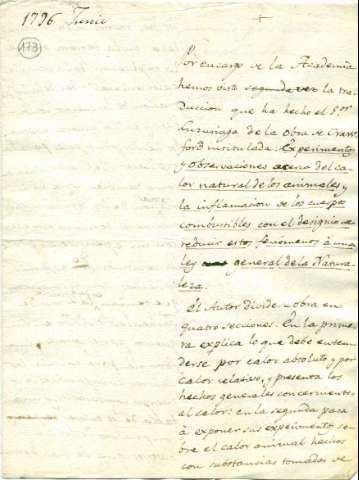 1796 Junio
173
Por encargo de la Academia
hemos visto segunda vez la tra-
duccion que ha hecho el S.or
Luzuriaga de la obra de Craw
ford intitulada: Experimentos
y observaciones acerca del ca-
lor natural de los animales y
la inflamacion de los cuerpos
combustibles con el designio de
reducir estos fenomenos à una
ley general de la Natura-
leza.
El Autor divide su obra en
quatro secciones. En la prime
ra explica lo que debe enten
derse por calor absoluto y por
calor relativo, y presenta los
hechos generales concernientes
al calor: en la segunda pasa
à exponer sus experimentos so-
bre el calor animal hechos
con substancias tomadas de